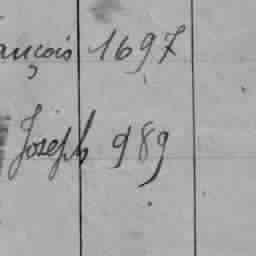 ançois 1697
Joseph 989